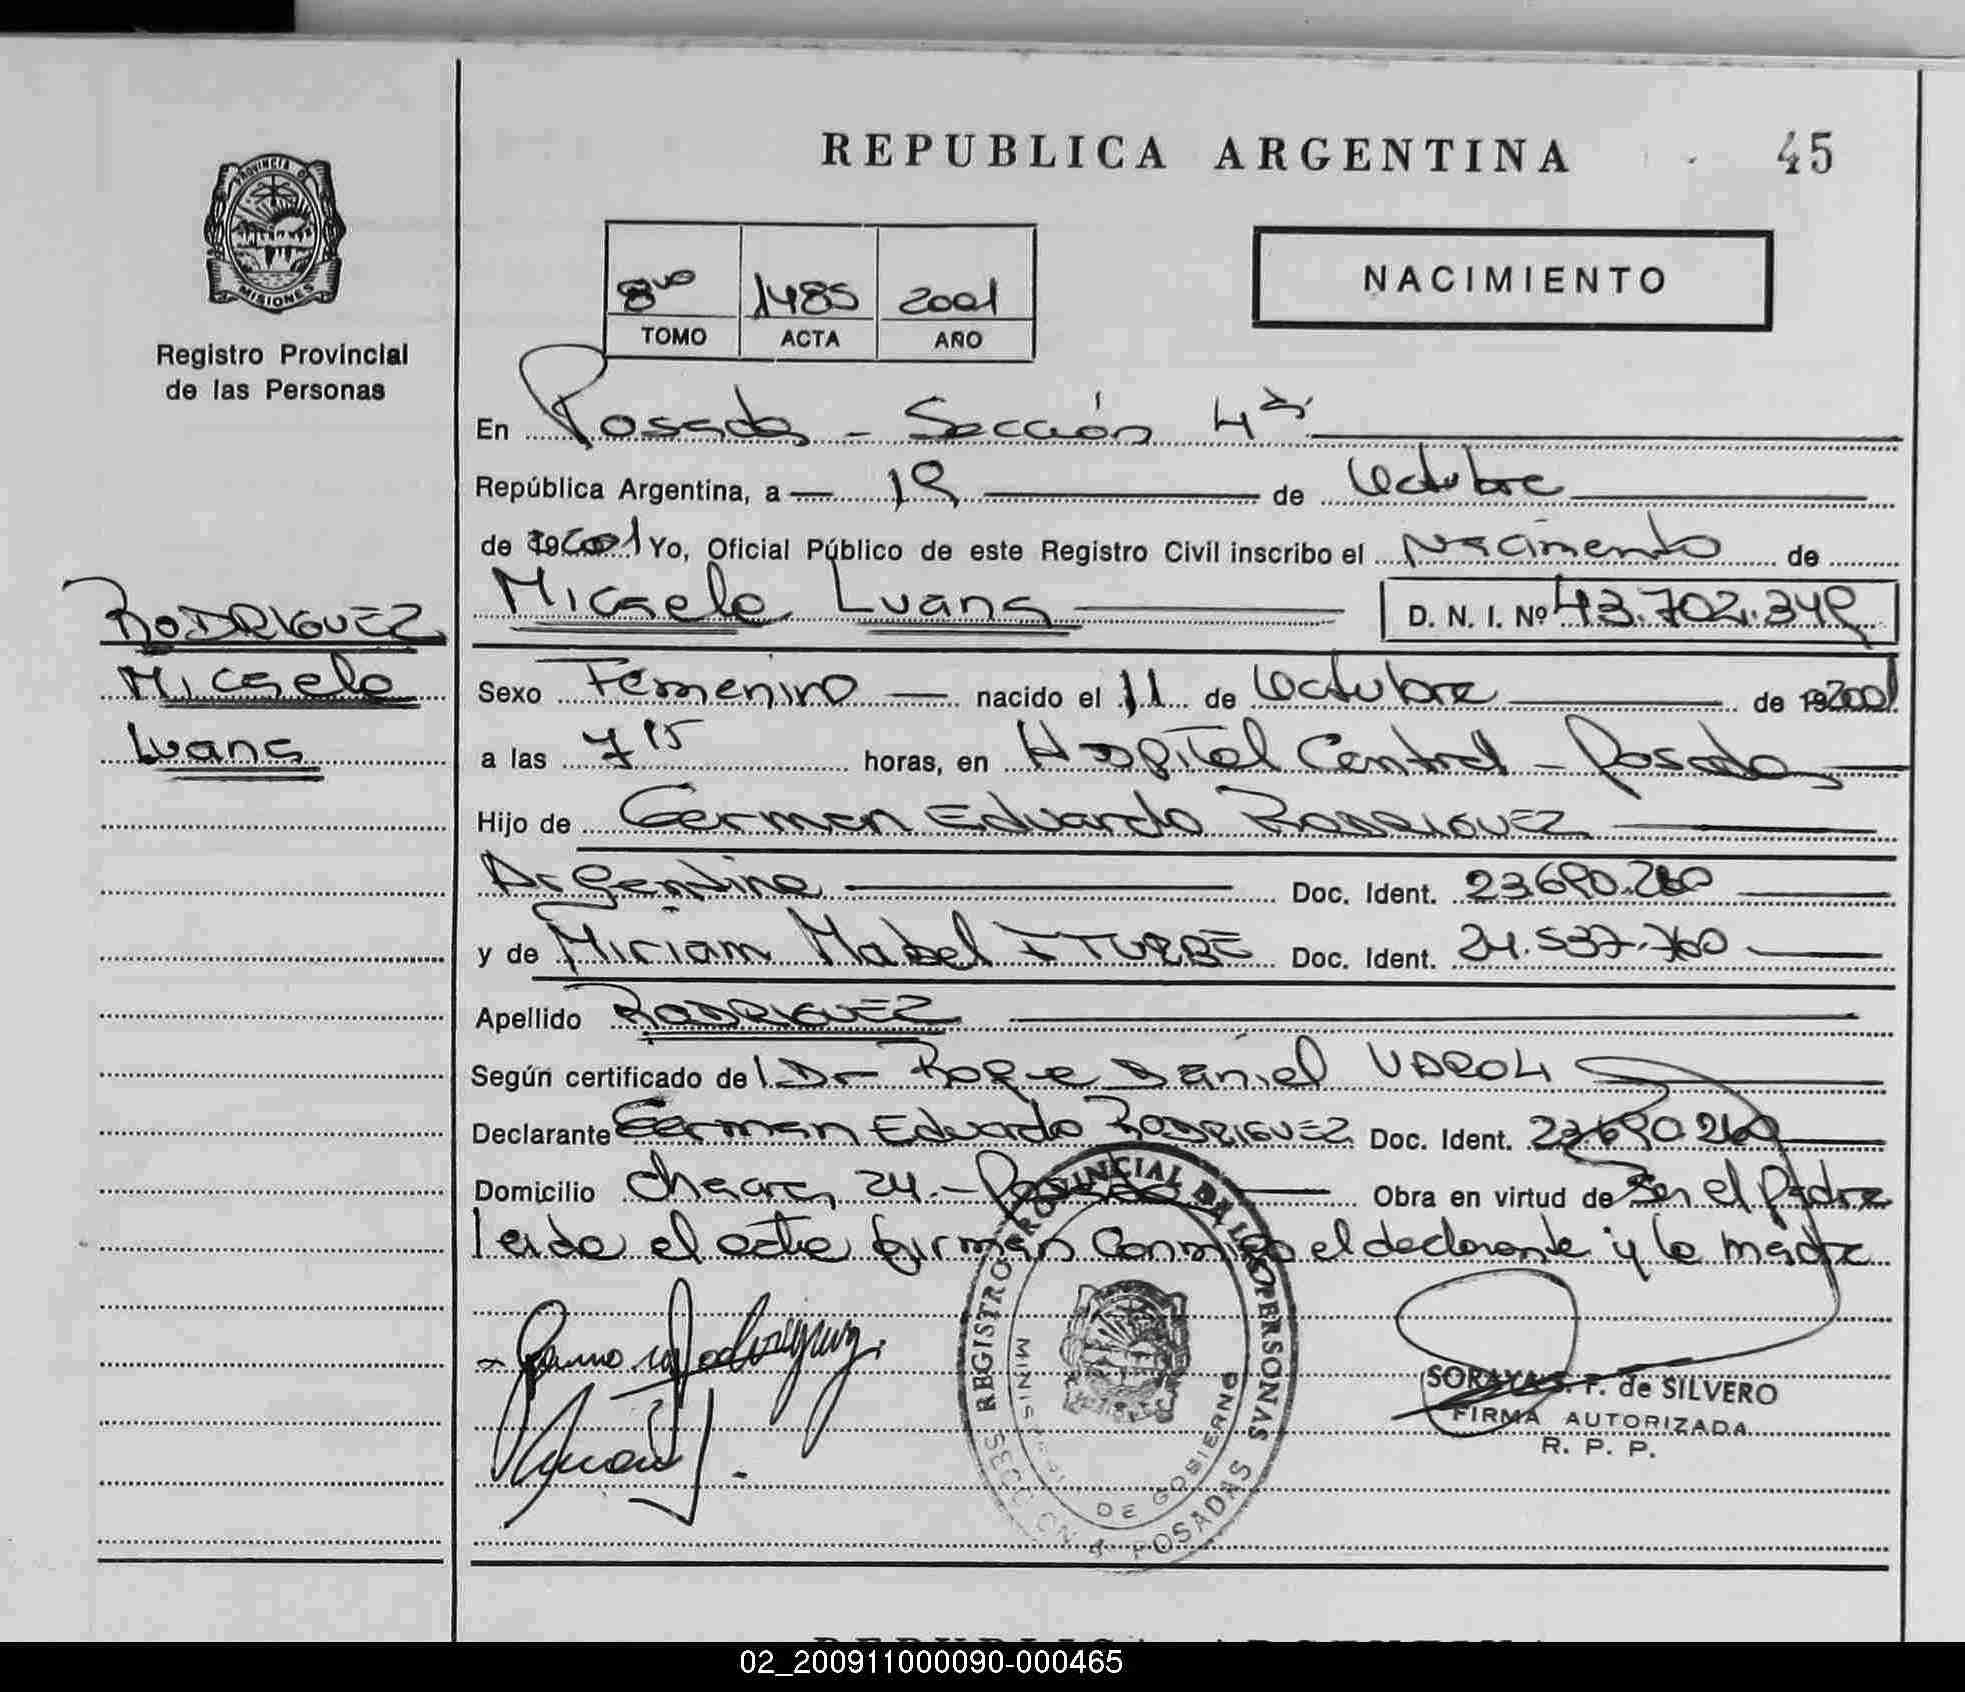 REPUBLICA ARGENTINA 45
PROVINCIA DE MISIONES
Registro Provincial
de las Personas
8vo 1485 2001
TOMO ACTA AÑO
NACIMIENTO
En Posadas - Sección 4ta
República Argentina, a 19 de Octubre
de 2001 Yo, Oficial Público de este Registro Civil inscribo el Nacimiento de
Micaela Luana D. N. I. Nº 43.702.349
RODRIGUEZ
Micaela
Luana
Sexo Femenino nacido el 11 de Octubre de 2001
a las 7 15 horas, en Hospital Central - Posadas
Hijo de German Eduardo RODRIGUEZ
Argentina Doc. Ident. 23.690.260
y de Miriam Mabel ITURBE Doc. Ident. 24.537.760
Apellido RODRIGUEZ
Según certificado del Dr Roque Daniel
Declarante German Eduardo RODRIGUEZ Doc. Ident. 23.690.260
Domicilio Chacra 24.- Posadas Obra en virtud de Ser el padre
leida el acta firman Conmigo el declarante y la madre
REGISTRO PROVINCIAL DE LAS PERSONAS
MINISTERIO DE GOBIERNO
SECCION 4 POSADAS
SORAYA F. de SILVERO
FIRMA AUTORIZADA
R. P. P.
02_200911000090-000465